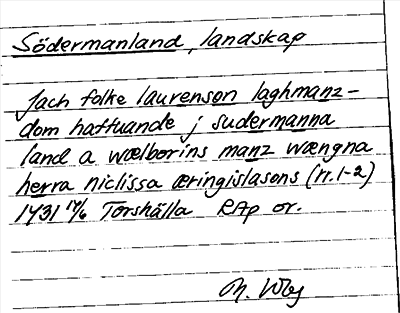 Södermanland, landskap
Jach folke laurenson laghmanz-
dom haffuande j sudermanna
land a wælborins manz wængna
herra niclissa æringislasons (rr. 1-2)
1431 14/6 Torshälla RAp or.